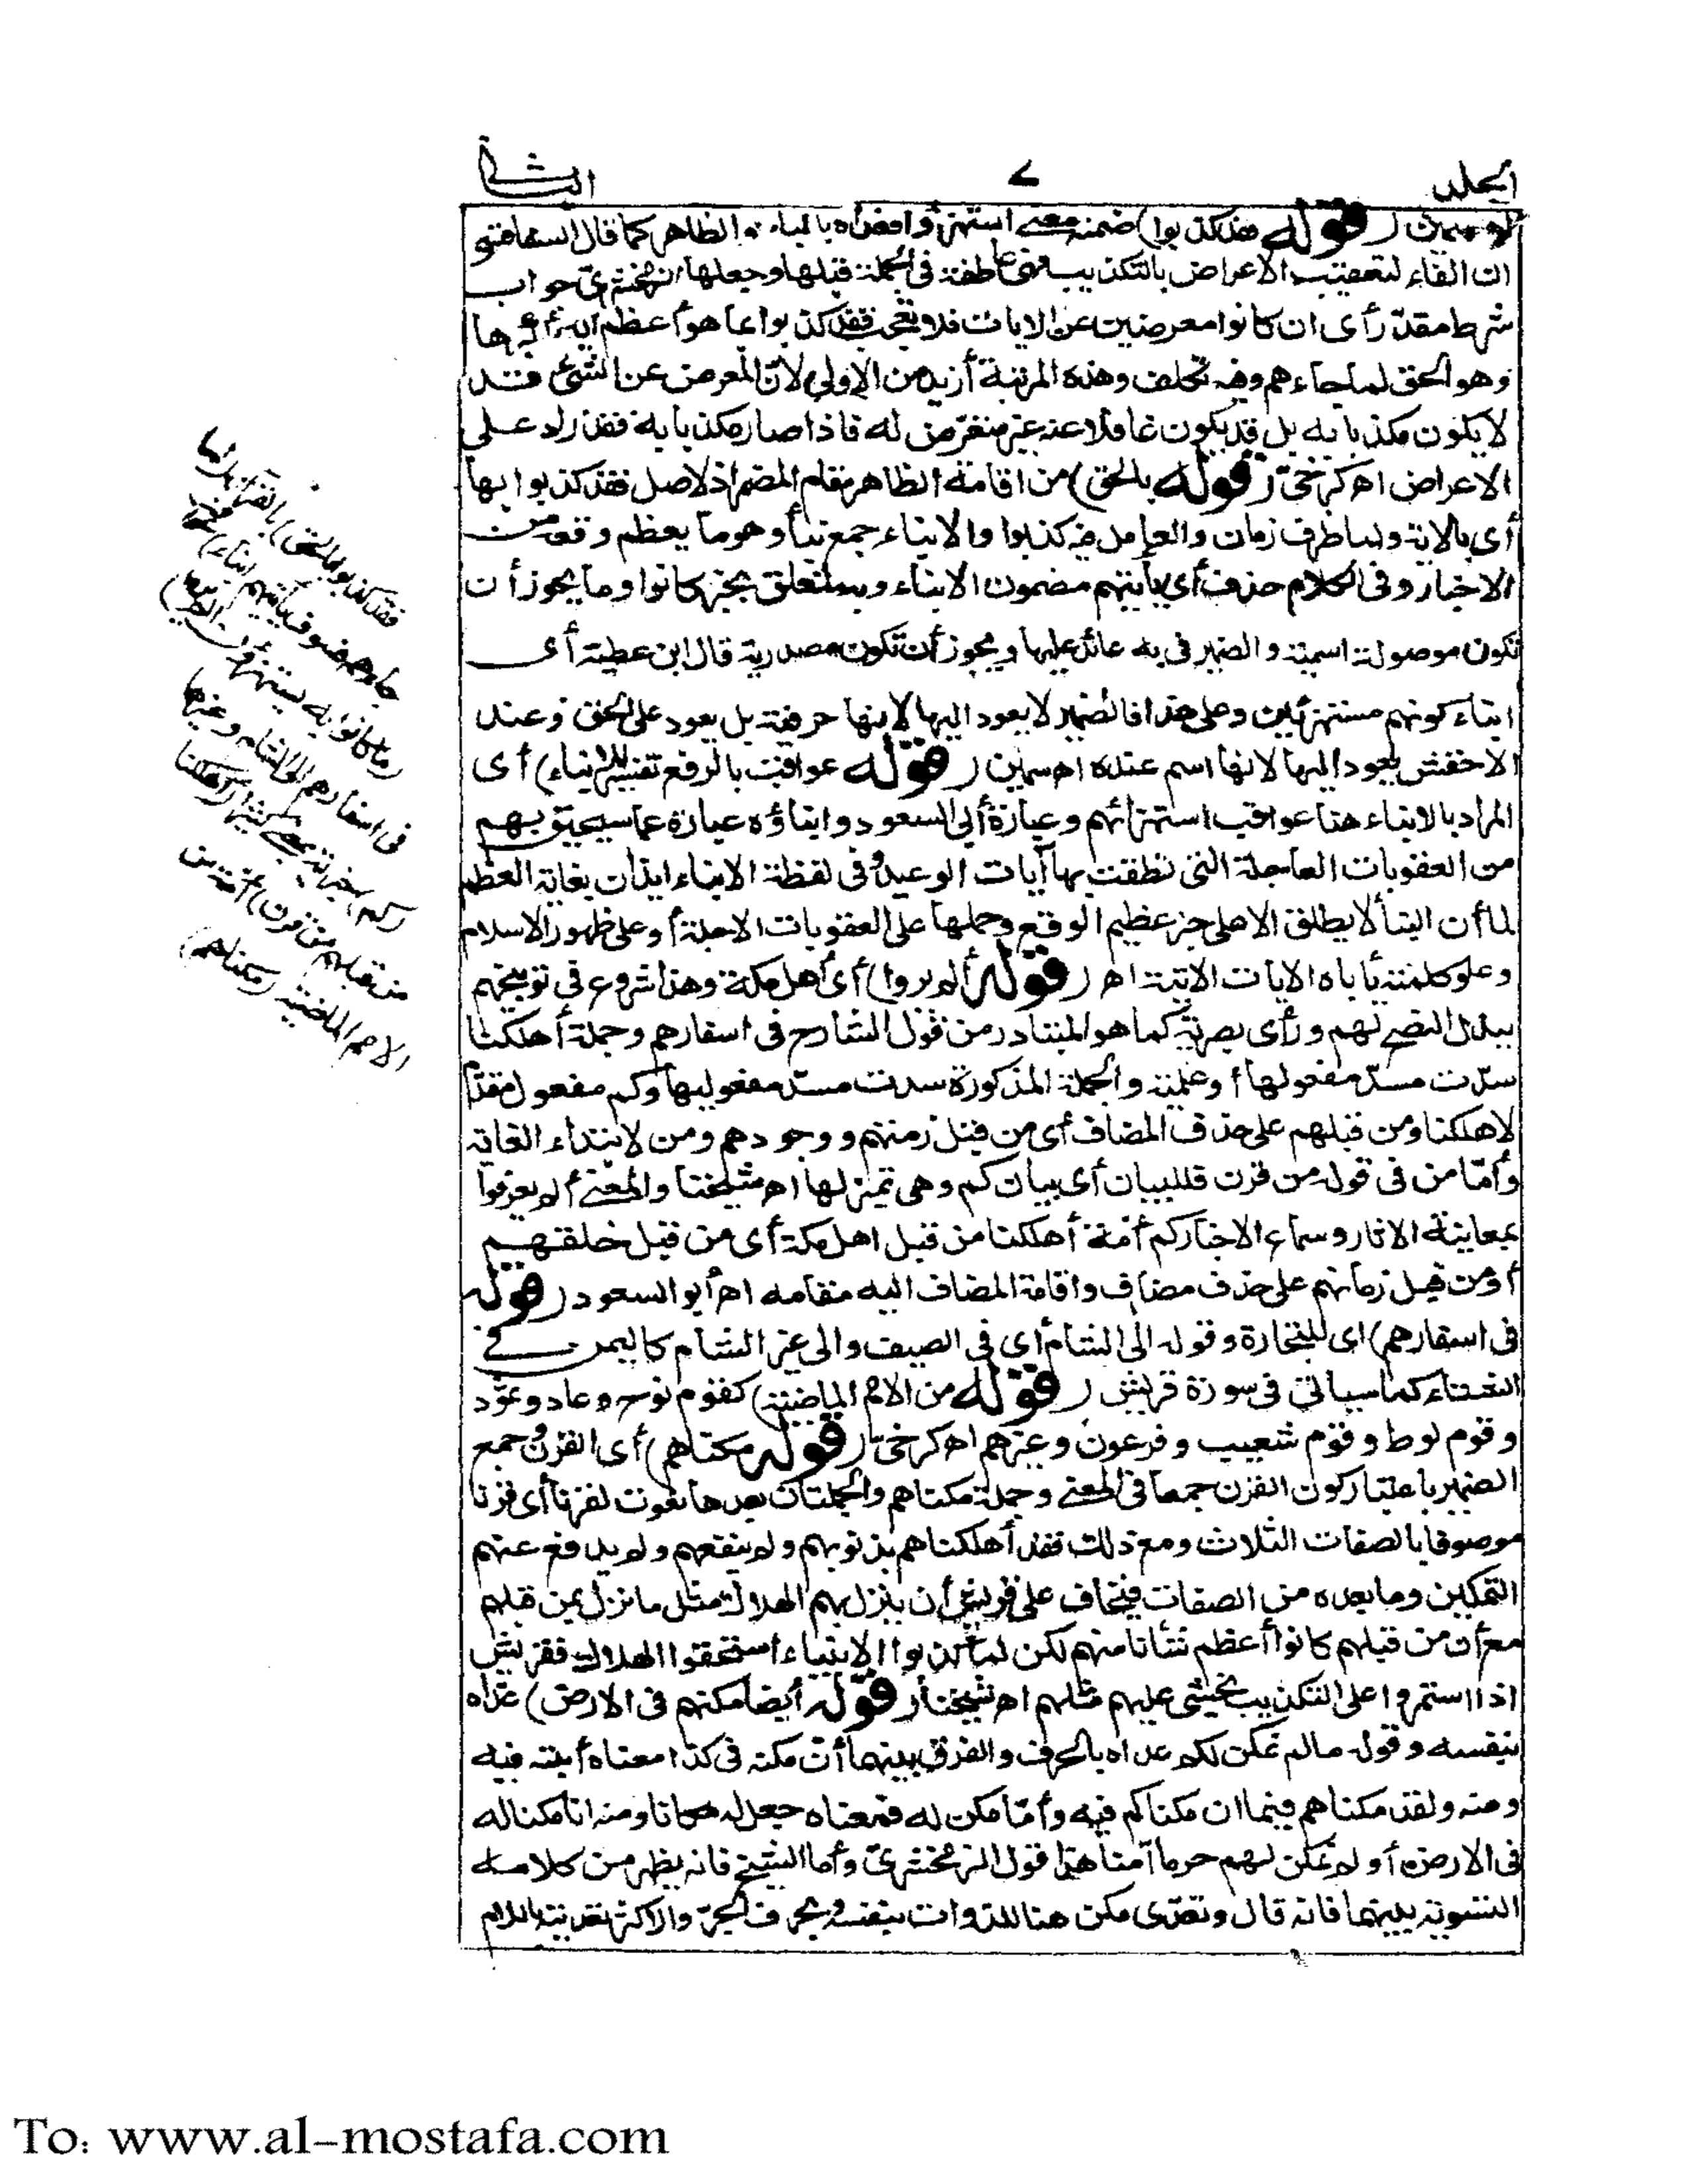 الجلد
٧
الثاني
اه سمين (قوله فقد كذبوا) ضمنه معنى استهزؤا فعداه بالباء والظاهر كما قال السفاقسي
ان الفاء لتعقيب الاعراض بالتكذيب فهي عاطفة في الجملة قبلها وجعلها الزمخشري جواب
شرط مقدر أي ان كانوا معرضين عن الايات فلا تعجب فقد كذبوا بما هو أعظم آية وأكبرها
وهو الحق لما جاءهم وفيه تكلف وهذه المرتبة أزيد من الاولى لان المعرض عن الشئ قد
لا يكون مكذبا به بل قد يكون غافلا عنه غير متعرض له فاذا صار مكذبا به فقد زاد على
الاعراض اه كرخي (قوله بالحق) من اقامة الظاهر مقام المضمر اذ الاصل فقد كذبوا بها
أي بالاية ولما ظرف زمان والعامل فيه كذبوا والانباء جمع نبأ وهو ما يعظم وقعه من
الاخبار وفي الكلام حذف أي يأتيهم مضمون الانباء وبه متعلق بخبر كانوا وما يجوز أن
تكون موصولة اسمية والضمير في به عائد عليها ويجوز أن تكون مصدرية قال ابن عطية أي
انباء كونهم مستهزئين وعلى هذا فالضمير لا يعود اليها لانها حرفية بل يعود على الحق وعند
الاخفش يعود اليها لانها اسم عنده اه سمين (قوله عواقب بالرفع تفسير للانباء) أي
المراد بالانباء هنا عواقب استهزائهم وعبارة أبي السعود وانباؤه عبارة عما سيحيق بهم
من العقوبات العاجلة التي نطقت بها آيات الوعيد وفي لفظة الانباء ايذان بغاية العظم
لما أن النبأ لا يطلق الا على خبر عظيم الوقع وحملها على العقوبات الاجلة أو على ظهور الاسلام
وعلو كلمته يأباه الايات الاتية اه (قوله ألم يروا) أي أهل مكة وهذا شروع في توبيخهم
ببذل النصح لهم ورأى بصرية كما هو المتبادر من قول الشارح في اسفارهم وجملة أهلكنا
سدت مسد مفعولها أو علمية والجملة المذكورة سدت مسد مفعوليها وكم مفعول مقدم
لاهلكنا ومن قبلهم على حذف المضاف أي من قبل زمنهم ووجودهم ومن لابتداء الغاية
وأما من في قوله من قرن فللبيان أي بيان كم وهي تمييز لها اه شيخنا والمعنى ألم يعرفوا
بمعاينة الاثار وسماع الاخبار كم أمة أهلكنا من قبل اهل مكة أي من قبل خلقهم
أو من قبل زمانهم على حذف مضاف واقامة المضاف اليه مقامه اه أبو السعود (قوله
في اسفارهم) اي للتجارة وقوله الى الشام أي في الصيف والى غير الشام كاليمن في
الشتاء كما سيأتي في سورة قريش (قوله من الامم الماضية) كقوم نوح وعاد وثمود
وقوم لوط وقوم شعيب وفرعون وغيرهم اه كرخي (قوله مكناهم) أي القرن وجمع
الضمير باعتبار كون القرن جمعا في المعنى وجملة مكناهم والجملتان بعدها نعوت لقرنا أي قرنا
موصوفا بالصفات الثلاث ومع ذلك فقد أهلكناهم بذنوبهم ولم ينفعهم ولم يدفع عنهم
التمكين وما بعده من الصفات فيخاف على قريش أن ينزل بهم الهلاك مثل ما نزل بمن قبلهم
مع أن من قبلهم كانوا أعظم شأنا منهم لكن لما كذبوا الانبياء استحقوا الهلاك فقريش
اذا استمروا على التكذيب يخشى عليهم مثلهم اه شيخنا (قوله أيضا مكنهم في الارض) عداه
بنفسه وقوله مالم نمكن لكم عداه بالحرف والفرق بينهما أن مكنه في كذا معناه أثبته فيه
ومنه ولقد مكناهم فيما ان مكناكم فيه وأما مكن له فمعناه جعل له مكانا ومنه انا مكنا له
في الارض أو لم نمكن لهم حرما آمنا هذا قول الزمخشري وأما الشيخ فانه يظهر من كلامه
التسوية بينهما فانه قال وتعدى مكن هنا للذوات بنفسه وبحرف الجر والاكثر تعديته باللام
فقد كذبوا بالحق) بالقرآن (لما
جاءهم فسوف يأتيهم انباء) عواقب
(ما كانوا به يستهزؤن ألم يروا)
في اسفارهم الى الشام وغيرها
(كم) خبرية بمعنى كثيرا (أهلكنا
من قبلهم من قرن) أمة من
الامم الماضية (مكناهم)
To: www.al-mostafa.com